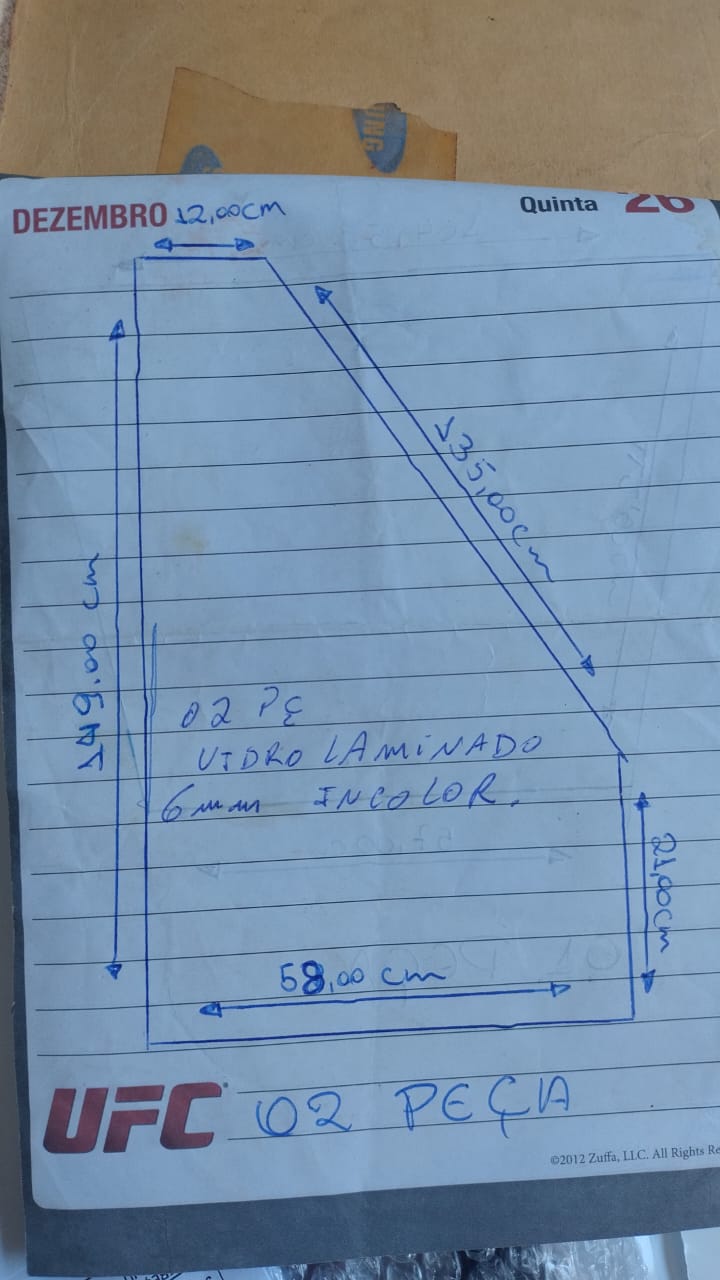 DEZEMBRO 12,00cm
Quinta 26
135,00cm
149,00 cm
02 PÇ
VIDRO LAMINADO
6mm INCOLOR.
21,00cm
58,00 cm
UFC 02 PEÇA
©2012 Zuffa, LLC. All Rights Re